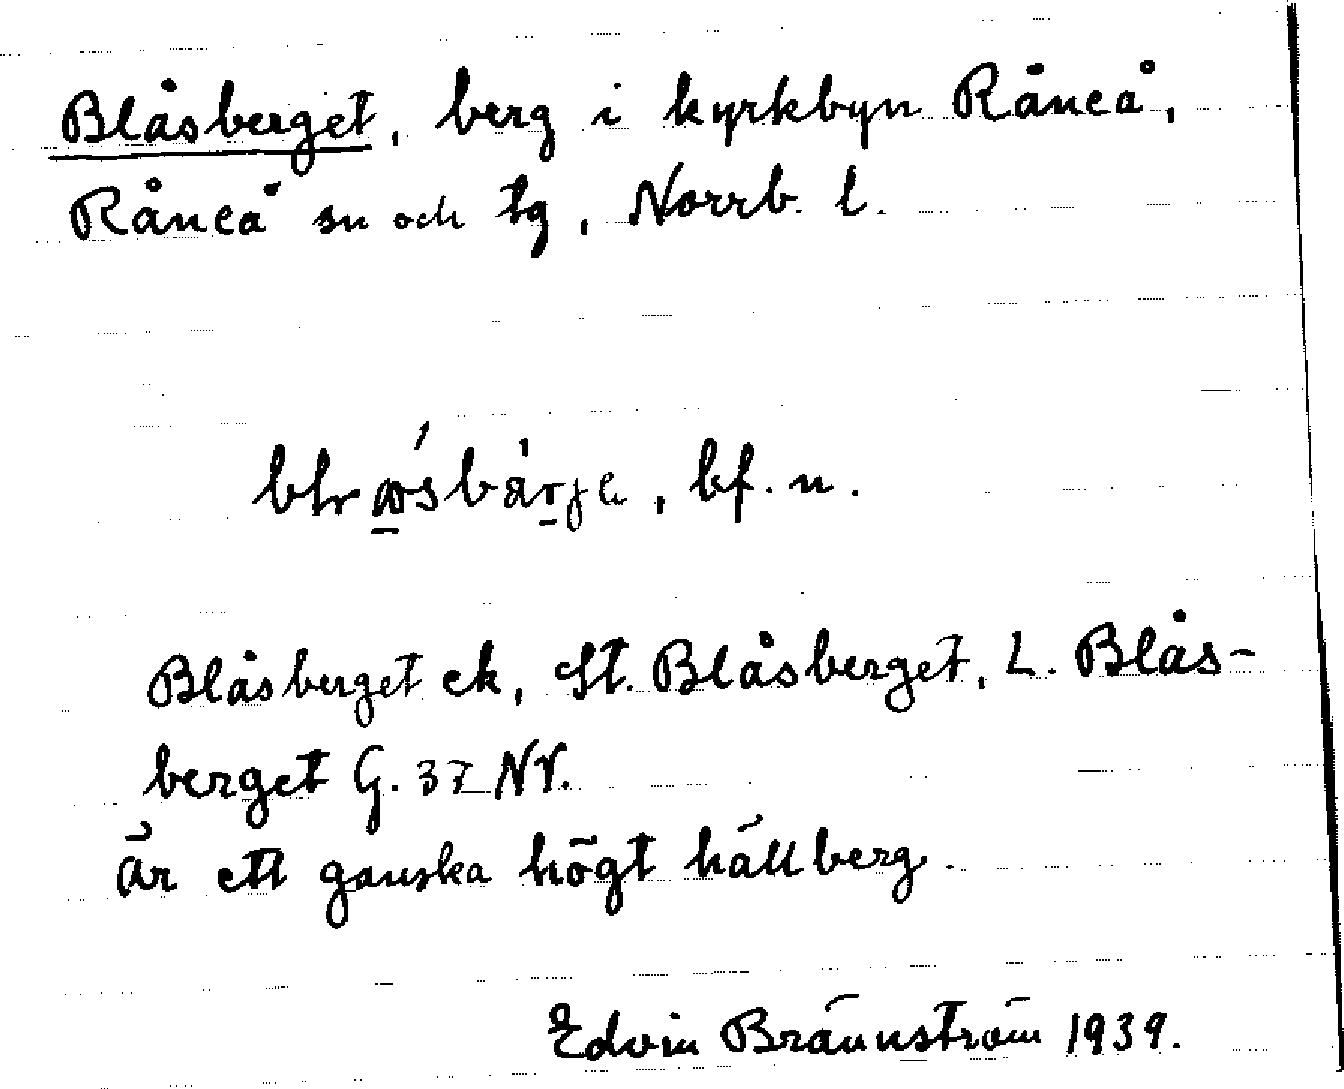 Blåsberget, berg i kyrkbyn Råneå,
Råneå sn och tg, Norrb. l.
bf. n.
Blåsberget ek, St. Blåsberget, L. Blås-
berget G. 37 NV.
Är ett ganska högt hällberg.
Edvin Brännström 1939.